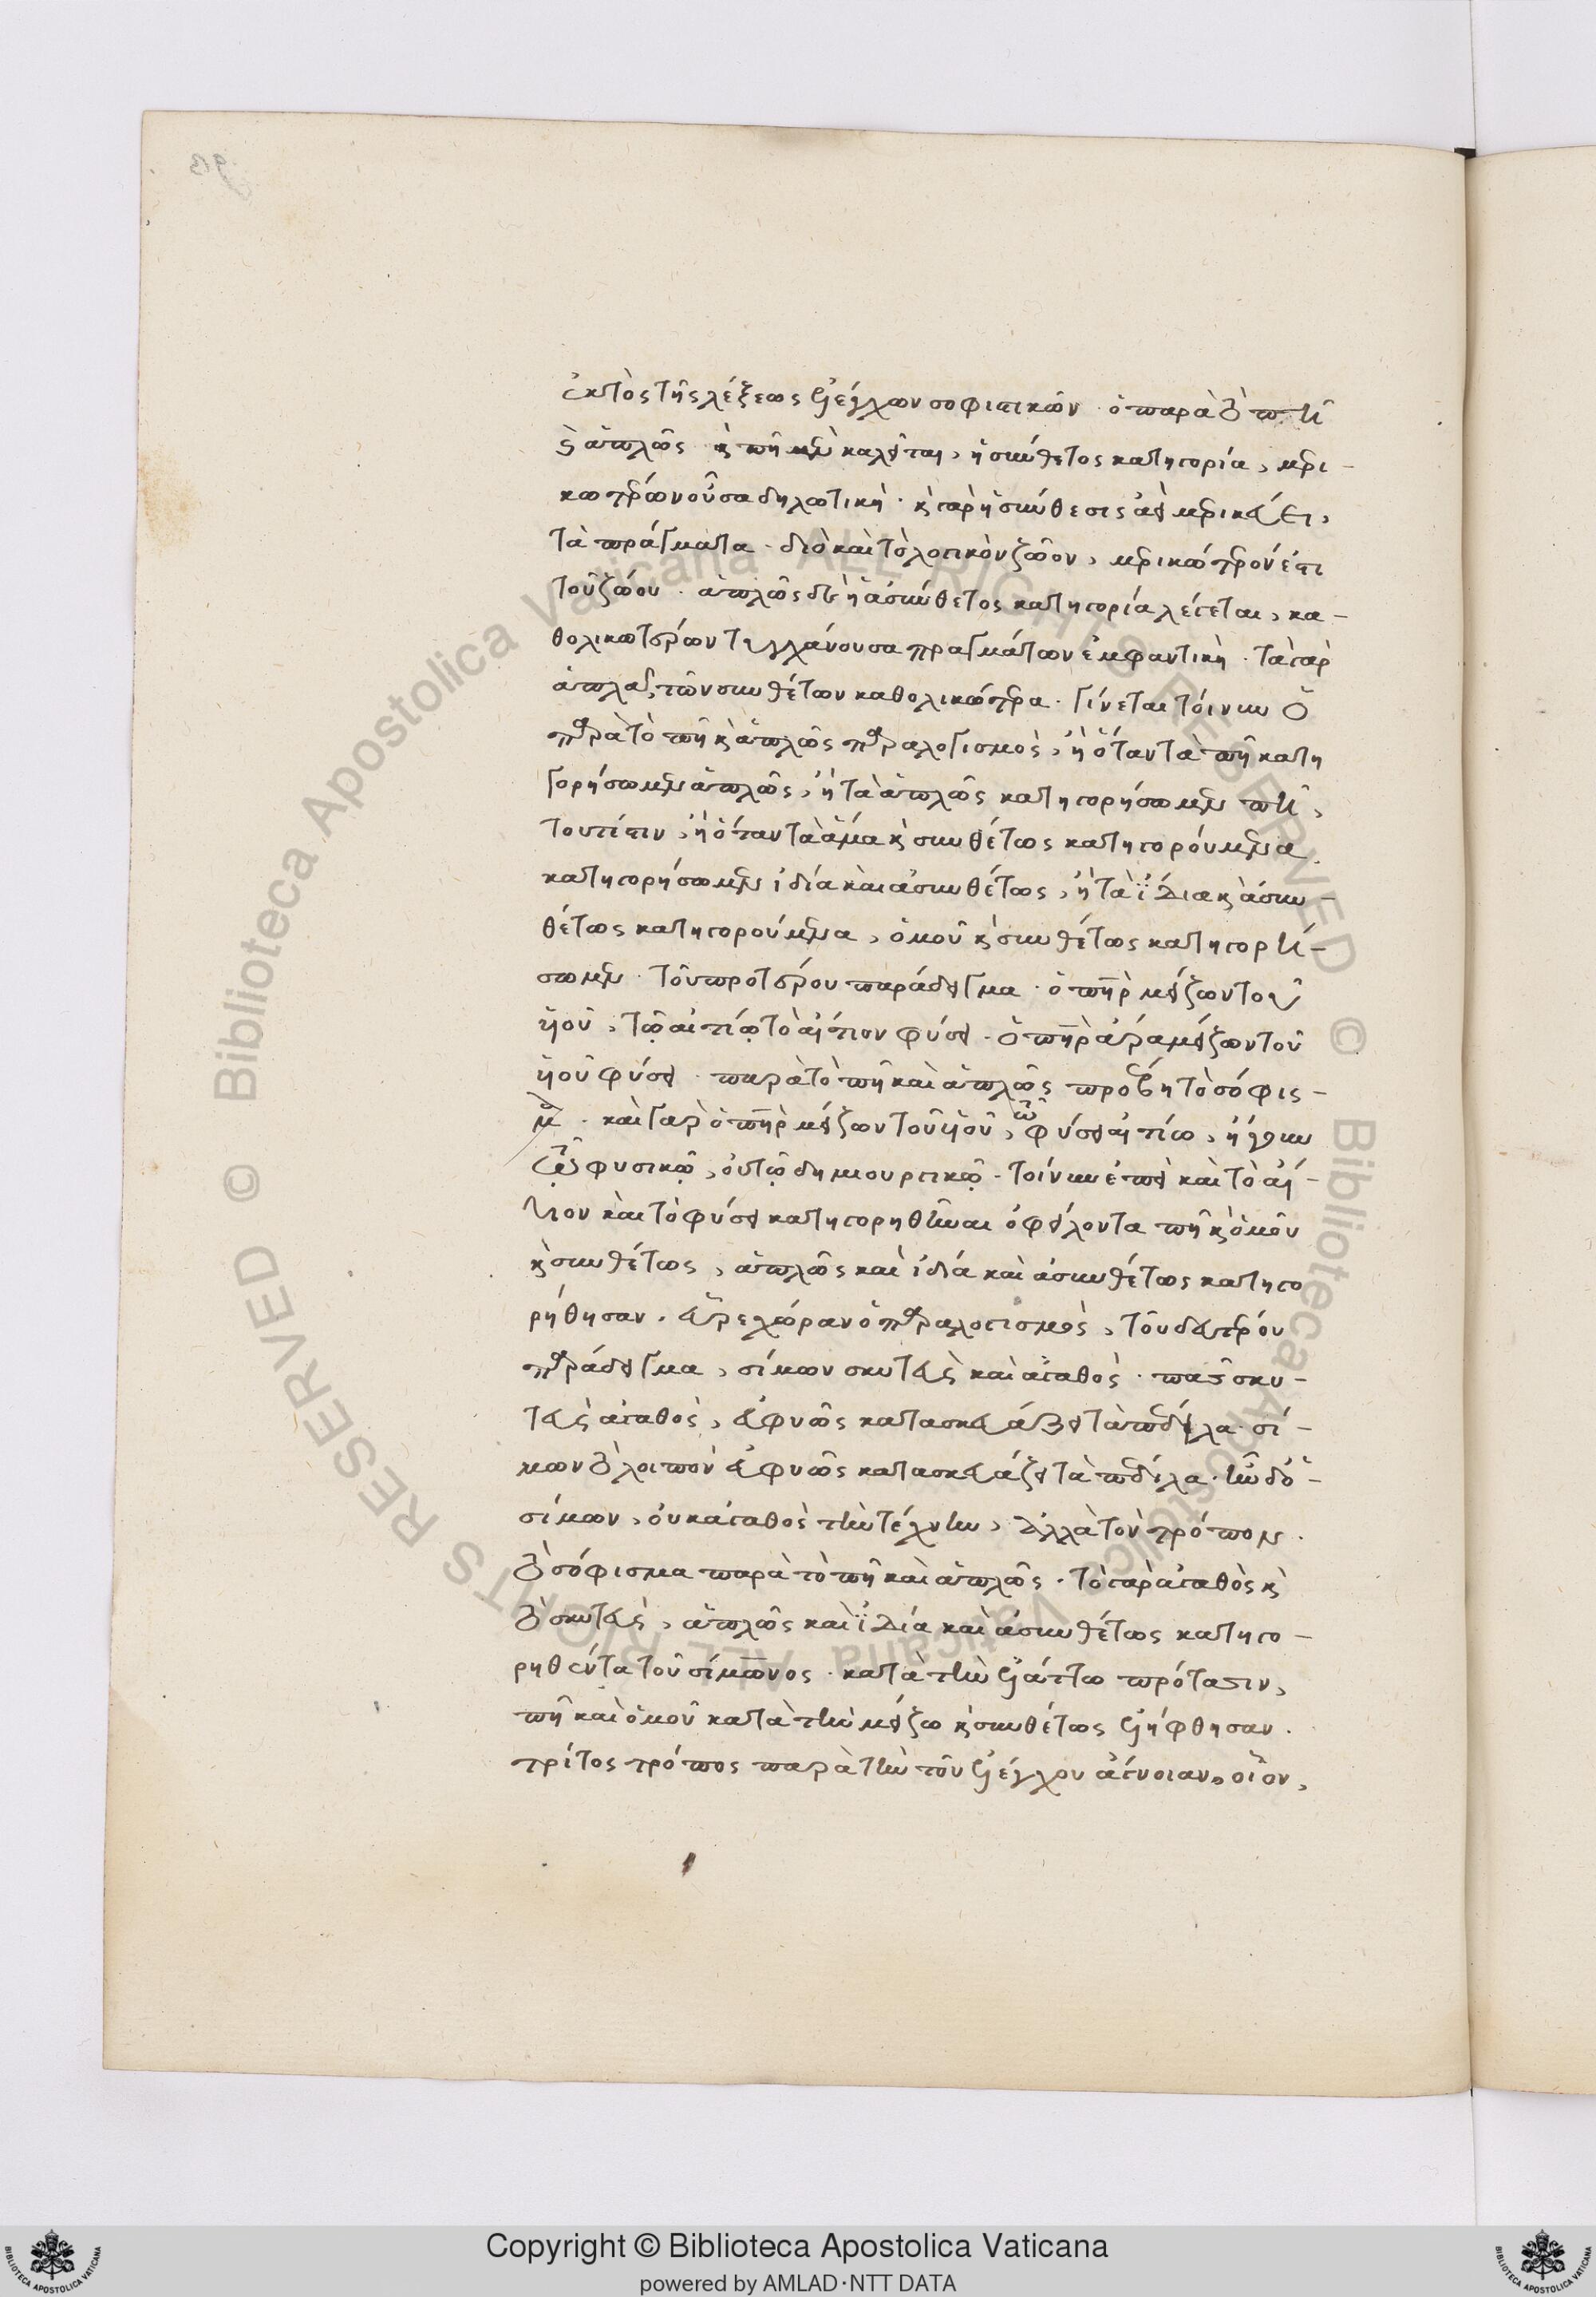 ἐκτὸς τῆς λέξεως ἐλέγχων σοφιστικῶν · ὁ παρὰ τὸ πῆ
καὶ ἁπλῶς · καὶ πῆ μὲν καλεῖται, ἡ σύνθετος κατηγορία, μερι-
κωτέρων οὖσα δηλωτικὴ · καὶ γὰρ ἡ σύνθεσις ἀεὶ μερικεύει,
τὰ πράγματα · διὸ καὶ τὸ λογικὸν ζῶον, μερικώτερόν ἐστι
τοῦ ζώου · ἁπλῶς δὲ ἡ ἀσύνθετος κατηγορία λέγεται, κα-
θολικωτέρων τυγχάνουσα πραγμάτων ἐμφαντικὴ · τὰ γὰρ
ἁπλᾶ, τῶν συνθέτων καθολικώτερα · γίνεται τοίνυν ὁ
παρὰ τὸ πῆ καὶ ἁπλῶς παραλογισμὸς, ἢ ὅταν τὰ πῆ κατη
γορήσωμεν ἁπλῶς, ἢ τὰ ἁπλῶς κατηγορήσωμεν πῆ,
τουτέστιν, ἢ ὅταν τὰ ἅμα καὶ συνθέτως κατηγορούμενα
κατηγορήσωμεν ἰδία καὶ ἀσυνθέτως, ἢ τὰ ἴδια καὶ ἀσυν-
θέτως κατηγορούμενα, ὁμοῦ καὶ συνθέτως κατηγορή-
σωμεν · τοῦ προτέρου παράδειγμα · ὁ πὴρ μείζων τοῦ
ὑοῦ, τῷ αἰτίῳ τὸ αἴτιον φύσει · ὁ πὴρ ἄρα μείζων τοῦ
ὑοῦ φύσει · παρὰ τὸ πῆ καὶ ἁπλῶς προέβη τὸ σόφισ-
μα · καὶ γὰρ ὁ πὴρ μείζων τοῦ ὑοῦ, τῷ φύσει αἰτίω, ἤγουν
τῷ φυσικῷ, οὐ τῷ δημιουργικῷ · τοίνυν ἐπεὶ καὶ τὸ αἴ-
τιον καὶ τὸ φύσει κατηγορηθῆναι ὀφείλοντα πῆ καὶ ὁμοῦ
καὶ συνθέτως, ἁπλῶς καὶ ἰδία καὶ ἀσυνθέτως κατηγο
ρήθησαν · εὗρε χώραν ὁ παραλογισμὸς, τοῦ δευτέρου
παράδειγμα, σίμων σκυτεὺς καὶ ἀγαθὸς · πᾶς σκυ-
τεὺς ἀγαθὸς, εὐφυῶς κατασκευάζει τὰ πέδιλα · σί-
μων τὸ λοιπὸν εὐφυῶς κατασκευάζει τὰ πέδιλα · ἦν δὲ ὁ
σίμων, οὐκ ἀγαθὸς τὴν τέχνην, ἀλλὰ τὸν τρόπον ·
τὸ σόφισμα παρὰ τὸ πῆ καὶ ἁπλῶς · τὸ γὰρ ἀγαθὸς καὶ
τὸ σκυτεὺς, ἁπλῶς καὶ ἰδία καὶ ἀσυνθέτως κατηγο-
ρηθέντα τοῦ σίμωνος · κατὰ τὴν ἐλάττω πρότασιν,
πῆ καὶ ὁμοῦ κατὰ τὴν μείζω καὶ συνθέτως ἐλήφθησαν ·
τρίτος τρόπος παρὰ τὴν τοῦ ἐλέγχου ἄγνοιαν, οἷον,
© Biblioteca Apostolica Vaticana ALL RIGHTS RESERVED © Biblioteca Apostolica Vaticana ALL RIGHTS RESERVED
Copyright © Biblioteca Apostolica Vaticana
powered by AMLAD·NTT DATA
BIBLIOTECA APOSTOLICA VATICANA
BIBLIOTECA APOSTOLICA VATICANA